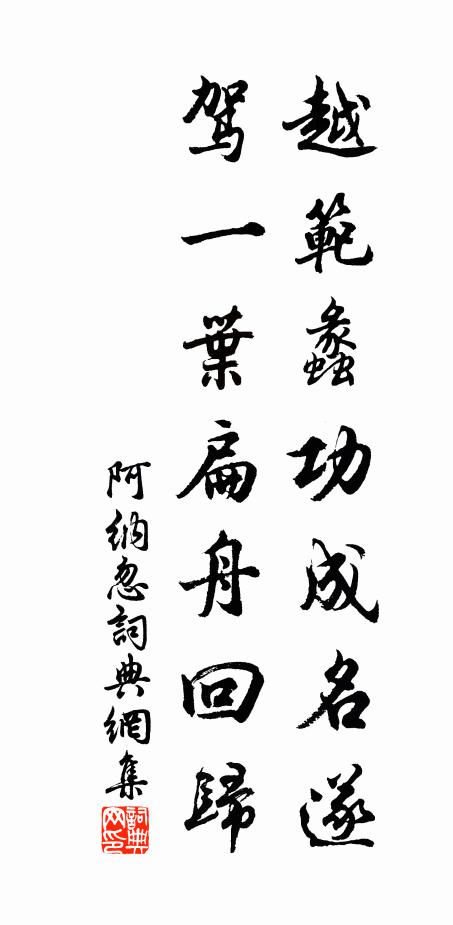 越範蠡功成名遂
駕一葉扁舟回歸
阿納忽詞典網集
詞典
网印